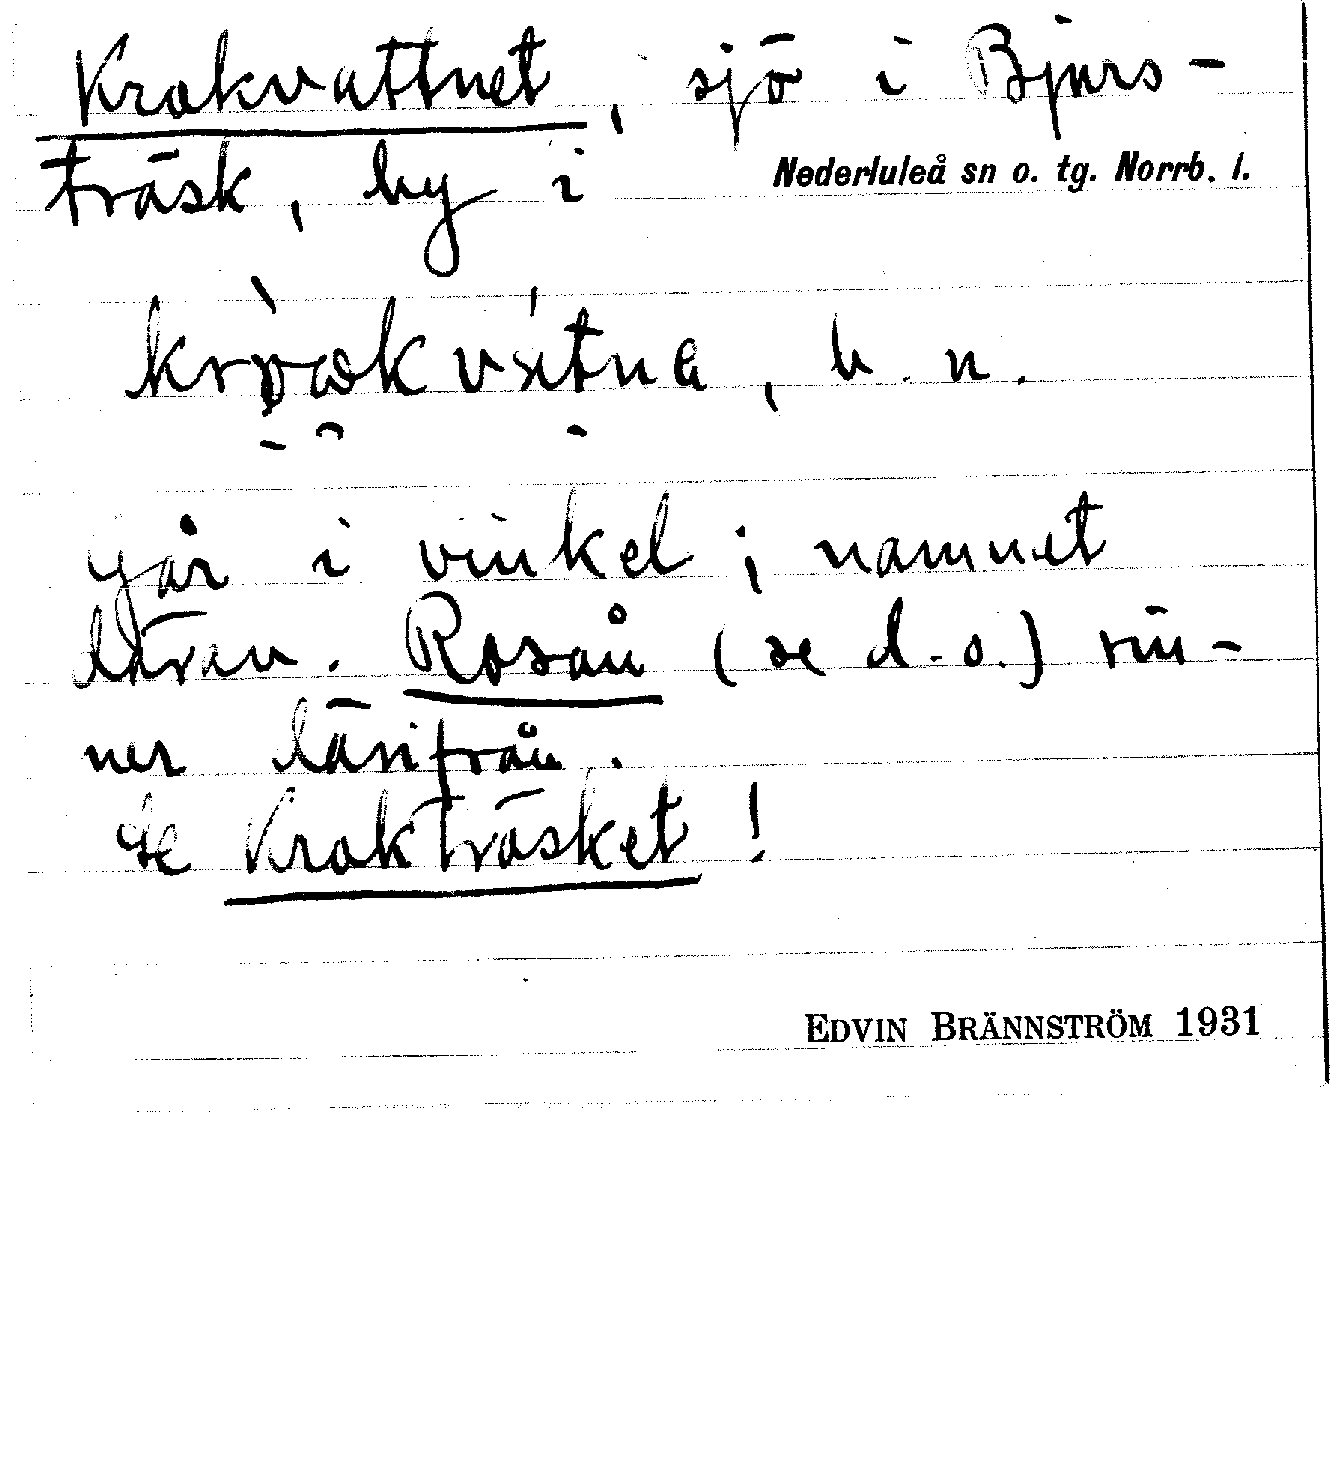 Krokvattnet, sjö i Bjurs-
träsk, by i Nederluleå sn o. tg. Norrb. l.
b. n.
går i vinkel; namnet
därav. Rosån (se d. o.) rin-
ner därifrån.
Se Krokträsket!
EDVIN BRÄNNSTRÖM 1931